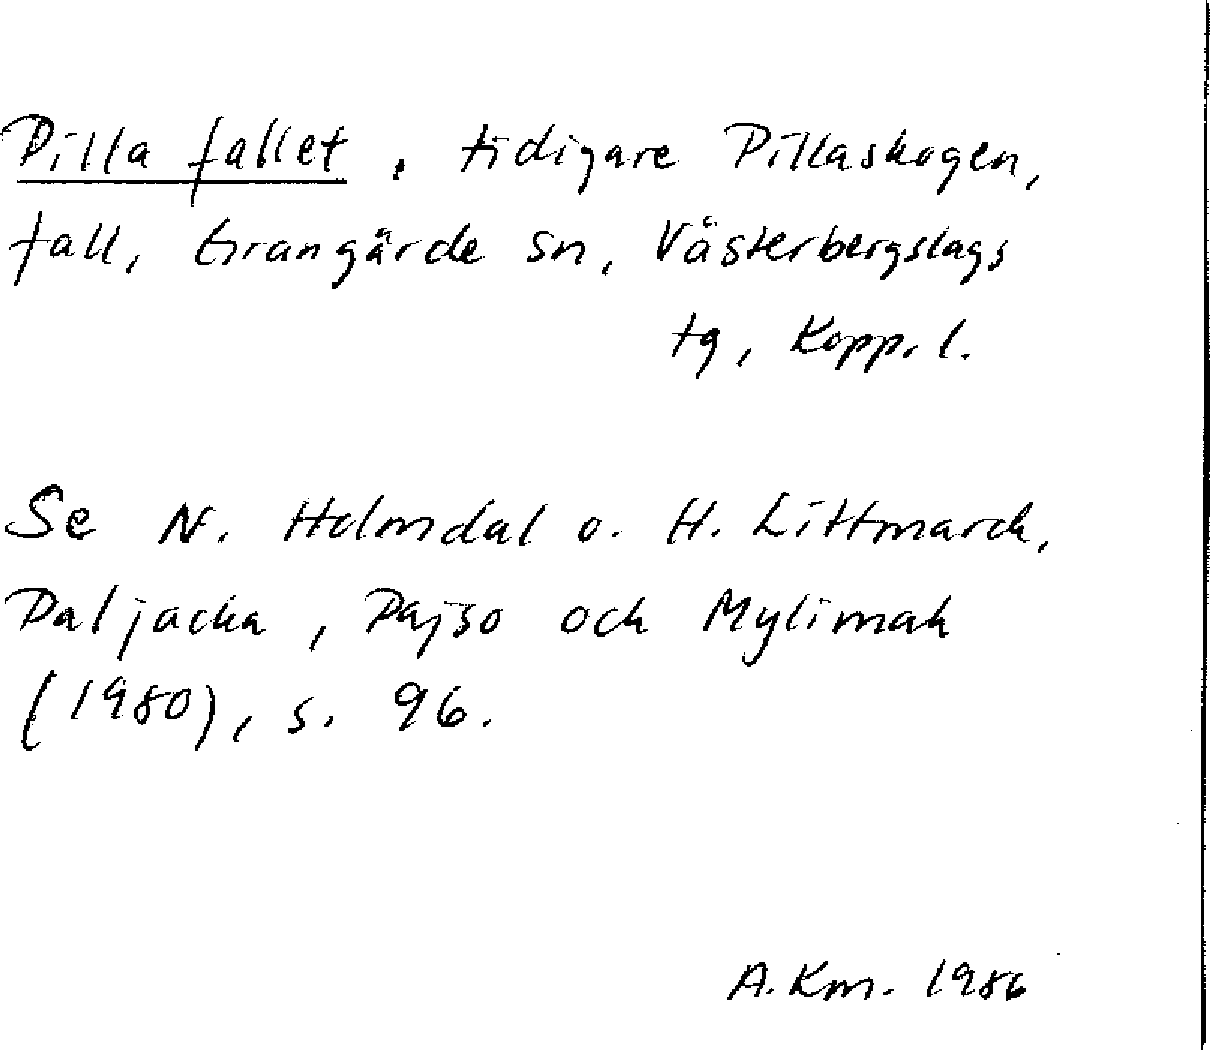 Pilla fallet, tidigare Pillaskogen,
fall, Grangärde sn, Västerbergslags
tg, Kopp. l.
Se N. Holmdal o. H. Littmarck,
Paljacka, Pajso och Mylimak
(1980), s. 96.
A. Km. 1986